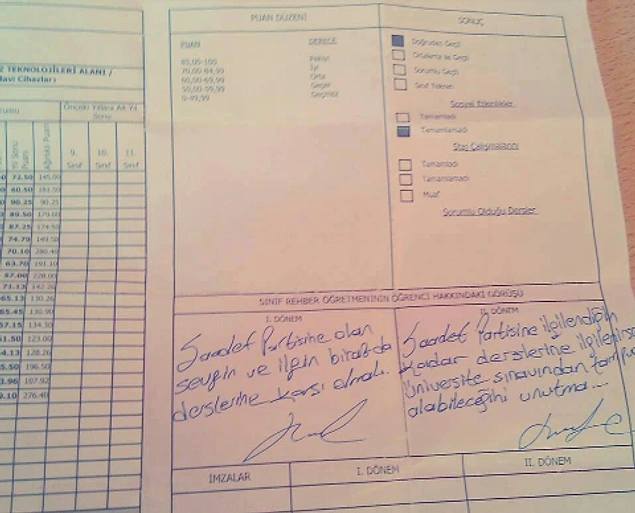 Z TEKNOLOJİLERİ ALANI /
Önceki Yıllara Ait Yıl
Sonu
Yıl Sonu
Puanı
Ağırlıklı Puanı
9.
Sınıf
10.
Sınıf
11.
Sınıf
72.50 145.00
60.50 181.50
90.25 90.25
89.50 179.00
87.25 174.50
74.79 149.58
70.10 280.40
63.70 191.10
57.00 228.00
71.13 142.26
65.13 130.26
65.45 130.90
67.15 134.30
61.50 123.00
64.13 128.26
65.50 196.50
63.96 107.92
69.10 276.40
PUAN DÜZENİ
PUAN DERECE
85,00-100 Pekiyi
70,00-84,99 İyi
60,00-69,99 Orta
50,00-59,99 Geçer
0-49,99 Geçmez
SONUÇ
Doğrudan Geçti
Ortalama ile Geçti
Sorumlu Geçti
Sınıf Tekrarı
Sosyal Etkinlikler
Tamamladı
Tamamlamadı
Staj Çalışmalarını
Tamamladı
Tamamlamadı
Muaf
Sorumlu Olduğu Dersler
SINIF REHBER ÖĞRETMENİNİN ÖĞRENCİ HAKKINDAKİ GÖRÜŞÜ
I. DÖNEM
Saadet Partisine olan
sevgin ve ilgin biraz da
derslerine karşı olmalı.
II. DÖNEM
Saadet Partisine ilgilendiğin
kadar derslerine ilgilenirsen
Üniversite sınavından tam puan
alabileceğini unutma...
İMZALAR I. DÖNEM II. DÖNEM